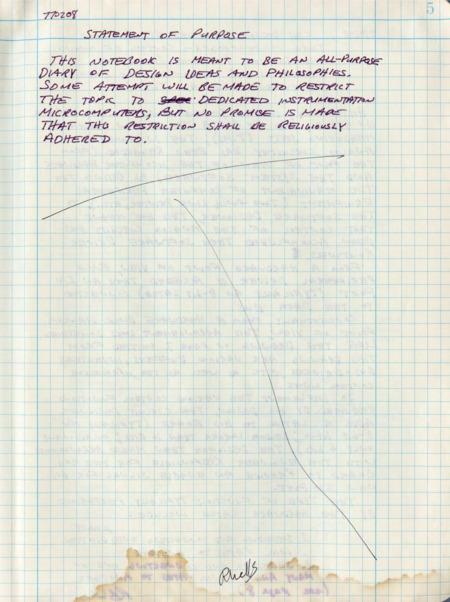 5
770208
STATEMENT OF PURPOSE
THIS NOTEBOOK IS MEANT TO BE AN ALL-PURPOSE
DIARY OF DESIGN IDEAS AND PHILOSOPHIES.
SOME ATTEMPT WILL BE MADE TO RESTRICT
THE TOPIC TO DEDICATED INSTRUMENTATION
MICROCOMPUTERS, BUT NO PROMISE IS MADE
THAT THIS RESTRICTION SHALL BE RELIGIOUSLY
ADHERED TO.